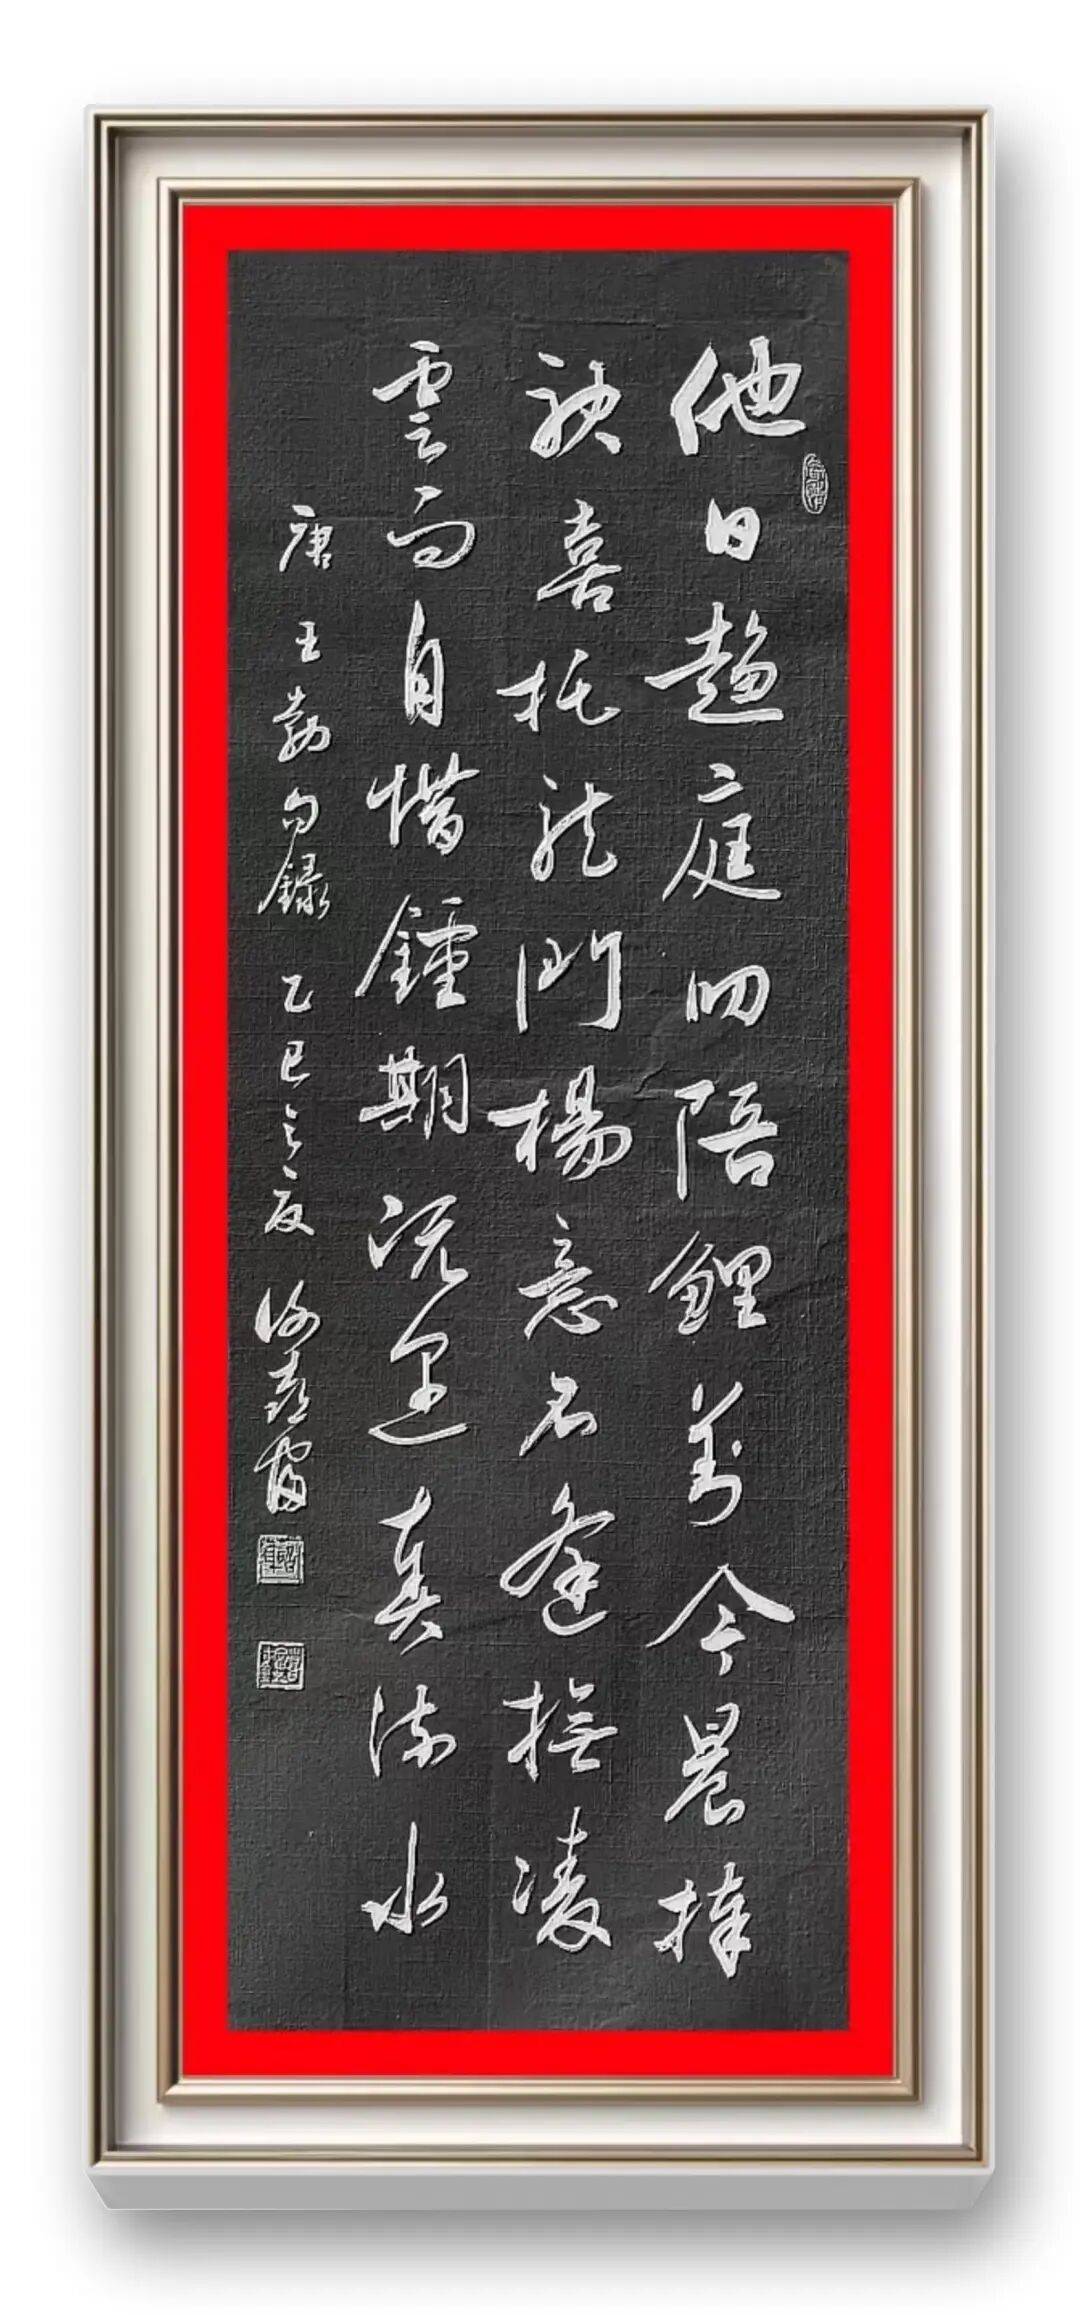 他日趨庭叨陪鯉對今晨捧
袂喜托龍門楊意不逢撫凌
雲而自惜鍾期既遇奏流水
唐王勃句錄乙巳之夏